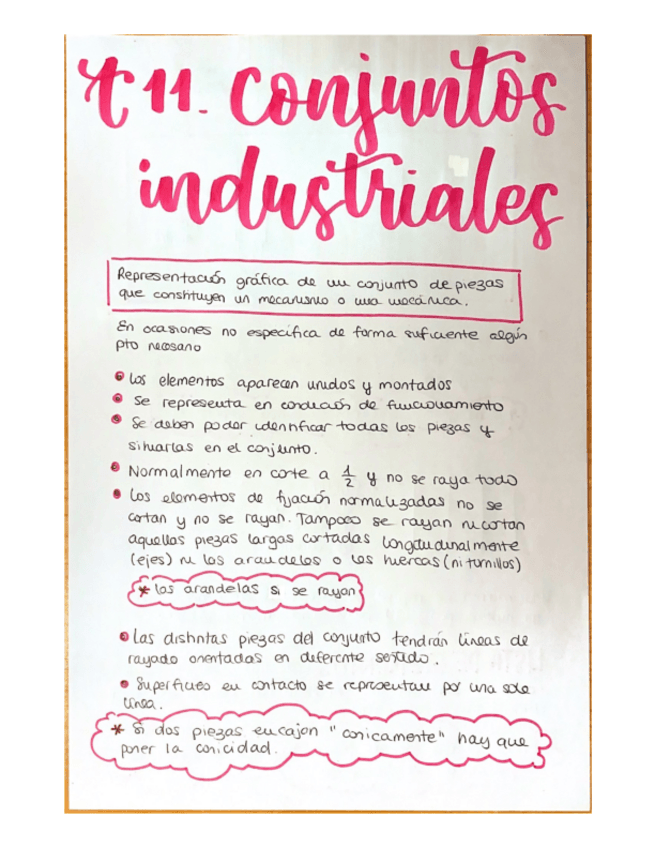 t11. Conjuntos
industriales
Representación gráfica de un conjunto de piezas
que constituyen un mecanismo o una mecánica.
En ocasiones no especifica de forma suficiente algún
pto necesario
Los elementos aparecen unidos y montados
Se representa en condición de funcionamiento
Se deben poder identificar todas las piezas y
situarlas en el conjunto.
Normalmente en corte a 1/2 y no se raya todo
Los elementos de fijación normalizadas no se
cortan y no se rayan. Tampoco se rayan ni cortan
aquellas piezas largas cortadas longitudinalmente
(ejes) ni las arandelas o las tuercas (ni tornillos)
* las arandelas si se rayan
Las distintas piezas del conjunto tendrán líneas de
rayado orientadas en diferente sentido.
Superficies en contacto se representan por una sola
línea.
* Si dos piezas encajan "conicamente" hay que
poner la conicidad.